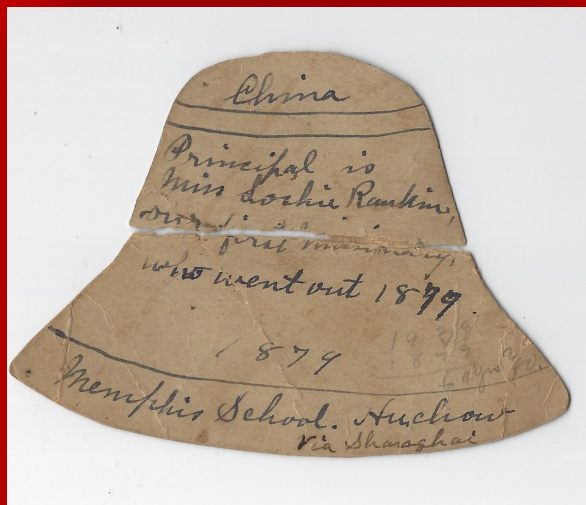 China
Principal is
Miss Lochie Rankin,
our first missionary,
who went out 1879
1879
1939
879
60 yrs ago.
Memphis School. Huchow
via Shanaghai